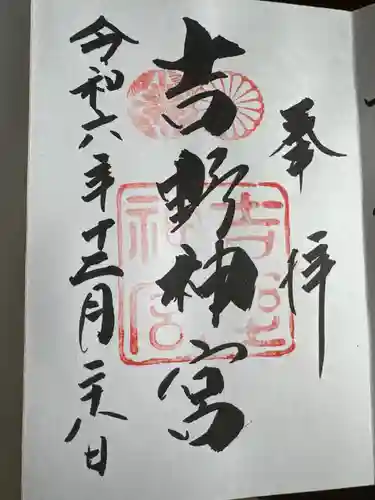 奉拝
吉野神宮
令和六年十二月二十八日